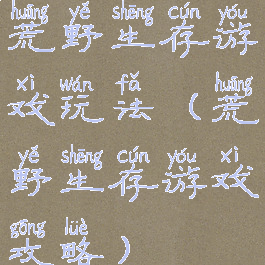 huāng yě shēng cún yóu
荒野生存游
xì wán fǎ huāng
戏玩法（荒
yě shēng cún yóu xì
野生存游戏
gōng lüè
攻略）